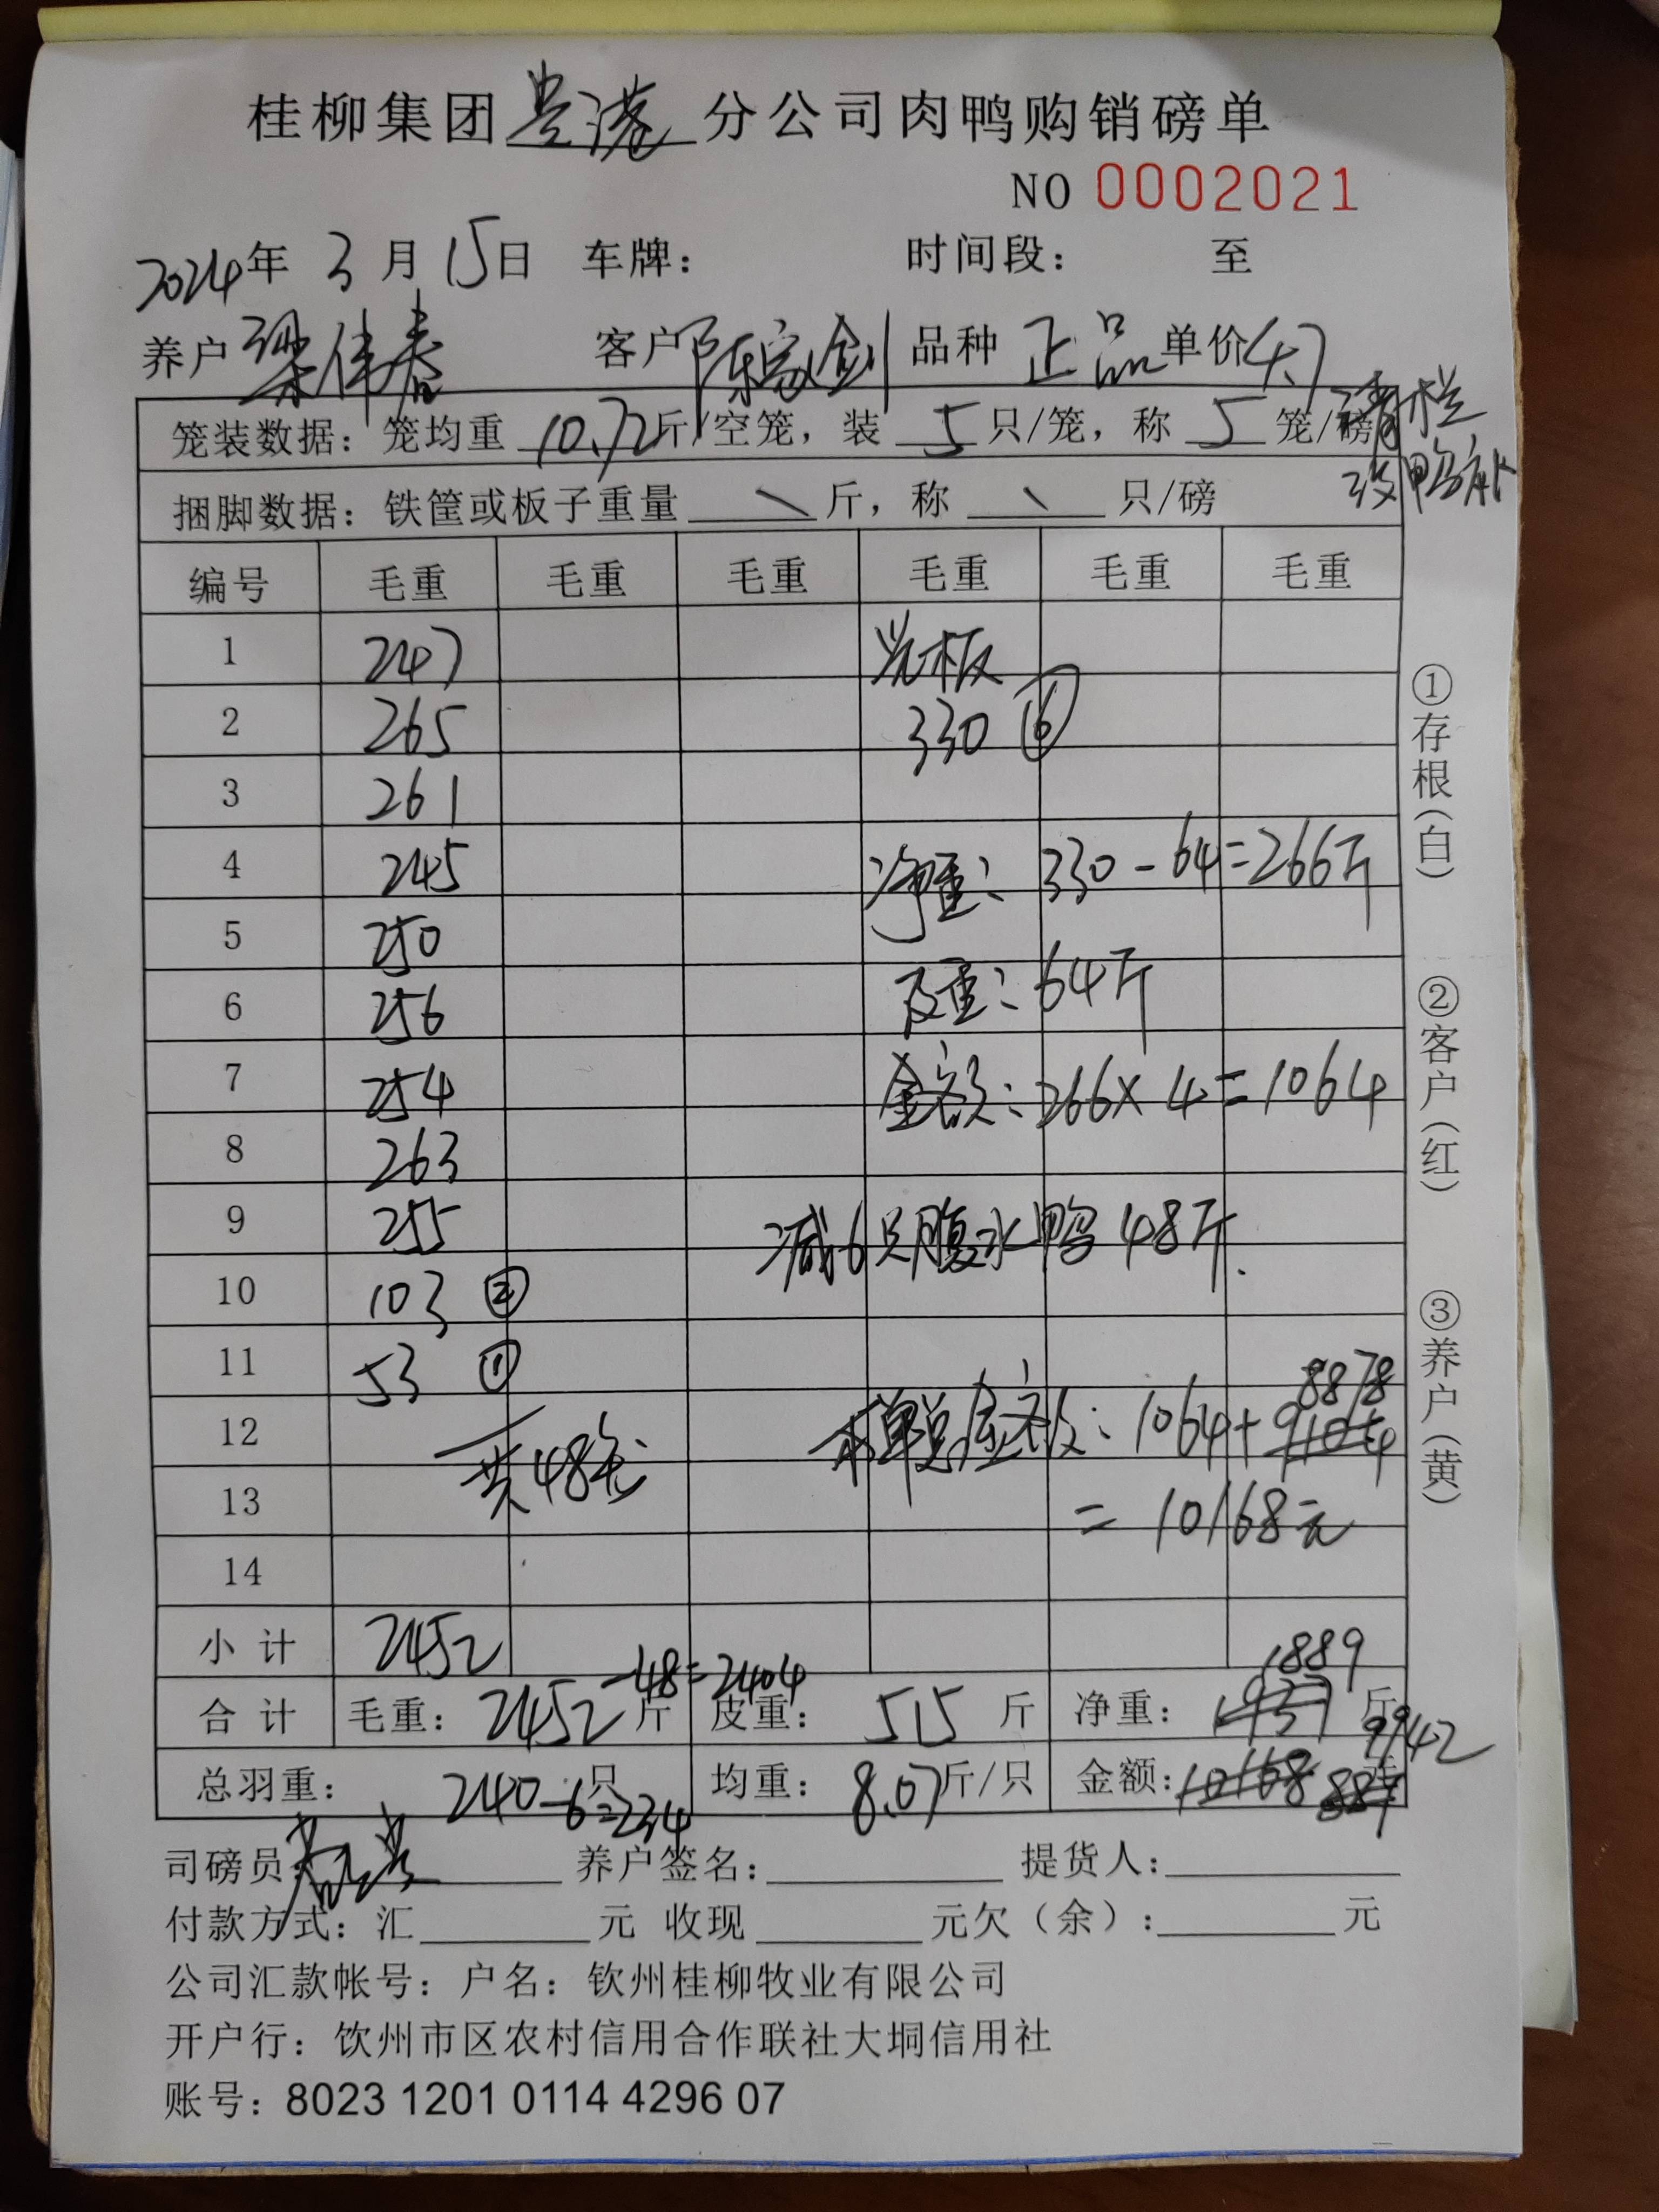 桂柳集团贵港分公司肉鸭购销磅单
NO 0002021
2024年 3月 15日 车牌: 时间段: 至
养户梁伟春 客户陈家剑 品种 正品 单价4.7
清栏
没鸭补
笼装数据: 笼均重 10.72斤/空笼, 装 5 只/笼, 称 5 笼/磅
捆脚数据: 铁筐或板子重量 \ 斤, 称 \ 只/磅
编号 毛重 毛重 毛重 毛重 毛重 毛重
1 247 光板
2 265 330 ⑥
3 261
4 245 净重: 330-64=266斤
5 250
6 256 皮重: 64斤
7 254 金额: 266×4=1064
8 263
9 255 减6只腹水鸭48斤.
10 103 ②
11 53 ① 8878
12 共48笼 本单总金额: 1064+9104
13 =10168元
14
小计 2452 1889
合计 毛重: 2452斤-48=2404 皮重: 515 斤 净重: 1937 斤
9942
总羽重: 240只-6=234 均重: 8.07斤/只 金额: 10168
司磅员: 养户签名: 提货人:
付款方式: 汇 元 收现 元欠(余): 元
公司汇款帐号: 户名: 钦州桂柳牧业有限公司
开户行: 钦州市区农村信用合作联社大垌信用社
账号: 8023 1201 0114 4296 07
①存根(白)
②客户(红)
③养户(黄)